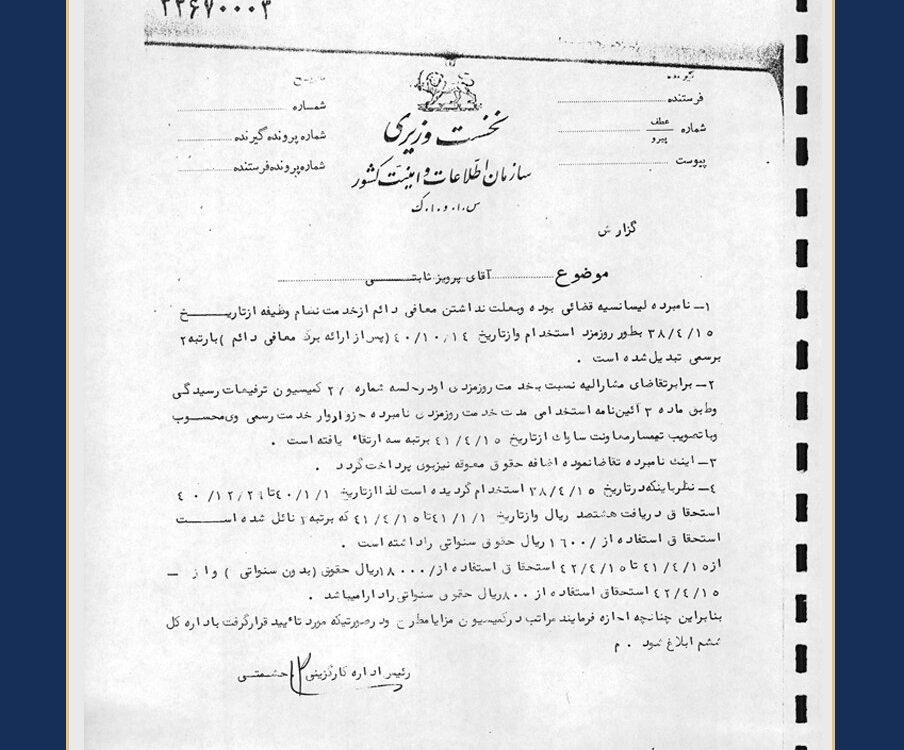 ۲۲۶۷۰۰۰۳
فرستنده
شماره
شماره عطف
پیرو
شماره پرونده گیرنده
پیوست
شماره پرونده فرستنده
نخست وزیری
سازمان اطلاعات و امنیت کشور
س.ا.و.ا.ک
گزارش
موضوع آقای پرویز ثابتی
۱ــ نامبرده لیسانسیه قضائی بوده وبعلت نداشتن معافی دائم ازخدمت نظام وظیفه ازتاریخ
۳۸/۴/۱۵ بطور روزمزد استخدام وازتاریخ ۴۰/۱۰/۱۴ (پس از ارائه برگ معافی دائم ) بارتبه ۲
برسمی تبدیل شده است .
۲ــ برابرتقاضای مشارالیه نسبت بخدمت روزمزدی اودرجلسه شماره ۲/ کمیسیون ترفیعات رسیدگی
وطبق ماده ۳ آئین‌نامه استخدامی مدت خدمت روزمزدی نامبرده جزو ادوار خدمت رسمی وی‌محسوب
وباتصویب تیمسارمعاونت ساواک ازتاریخ ۴۱/۴/۱۵ برتبه سه ارتقاء یافته است .
۳ــ اینک نامبرده تقاضانموده اضافه حقوق معوقه نیزبوی پرداخت گردد .
۴ــ نظرباینکه‌درتاریخ ۳۸/۴/۱۵ استخدام گردیده است لذا ازتاریخ ۴۰/۱/۱ تا ۴۰/۱۲/۲۹
استحقاق دریافت هشتصد ریال وازتاریخ ۴۱/۱/۱ تا ۴۱/۴/۱۵ که برتبه ۳ نائل شده است
استحقاق استفاده از /۱۶۰۰ ریال حقوق سنواتی راداشته است .
از ۴۱/۴/۱۵ تا ۴۲/۴/۱۵ استحقاق استفاده از /۱۸۰۰۰ریال حقوق (بدون سنواتی ) و از ــ
۴۲/۴/۱۵ استحقاق استفاده از ۸۰۰ریال حقوق سنواتی راد ارامیباشد .
بنابراین چنانچه اجازه فرمایند مراتب درکمیسیون مزایامطرح ودرصورتیکه مورد تأیید قرارگرفت باداره کل
ششم ابلاغ شود . م
رئیس اداره کارگزینی . حشمتی